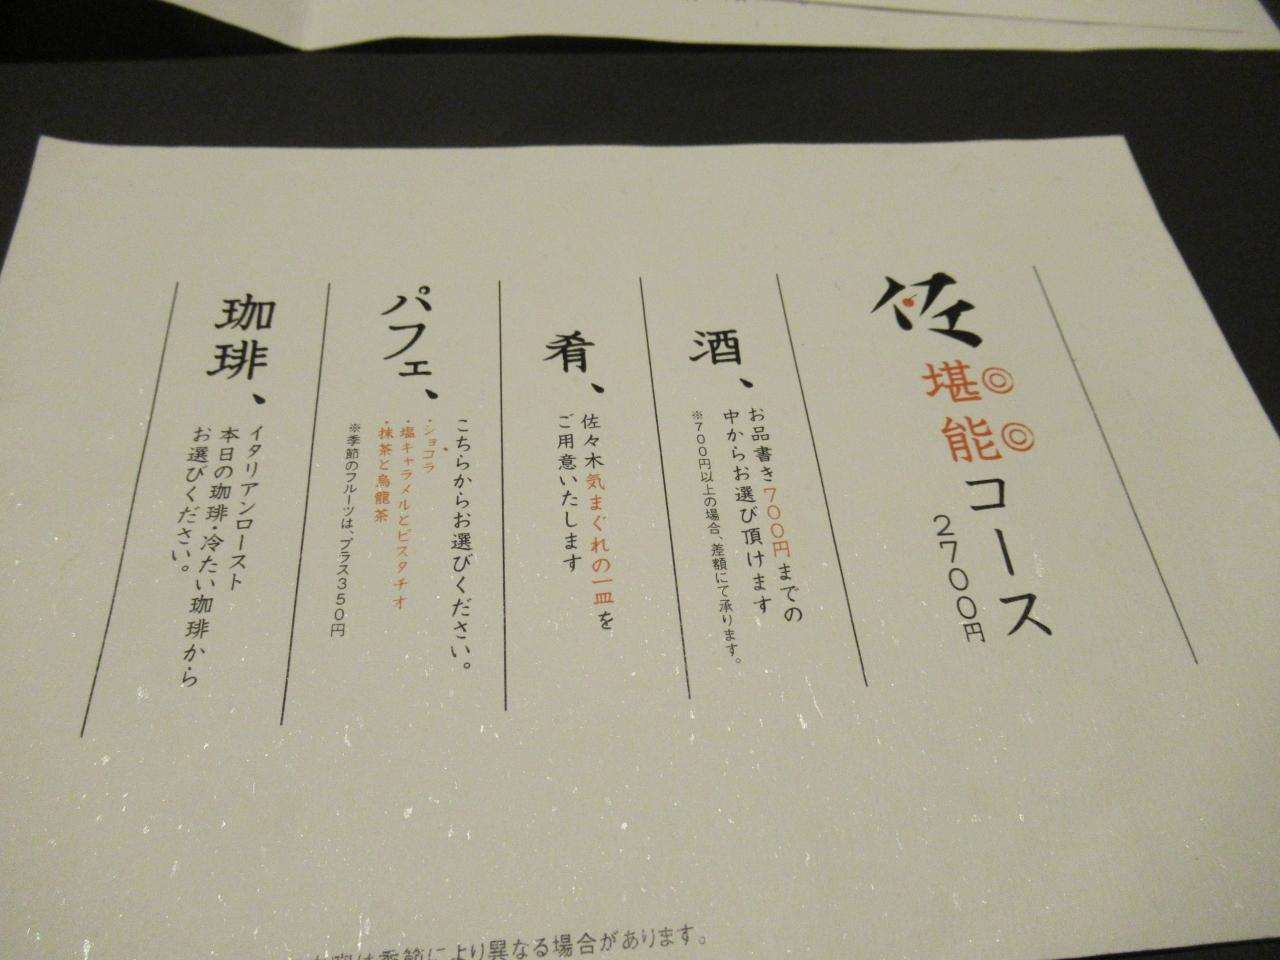 佐
堪能コース
2700円
酒、
お品書き700円までの
中からお選び頂けます
※700円以上の場合、差額にて承ります。
肴、
佐々木気まぐれの一皿を
ご用意いたします
パフェ、
こちらからお選びください。
・ショコラ
・塩キャラメルとピスタチオ
・抹茶と烏龍茶
※季節のフルーツは、プラス350円
珈琲、
イタリアンロースト
本日の珈琲・冷たい珈琲から
お選びください。
は季節により異なる場合があります。